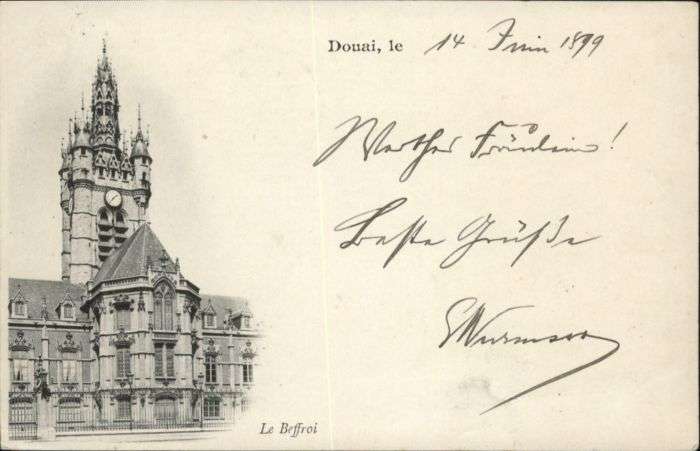 Douai, le 14 Juin 1899
Werthes Fräulein!
Beste Grüße
Wurmser
Le Beffroi